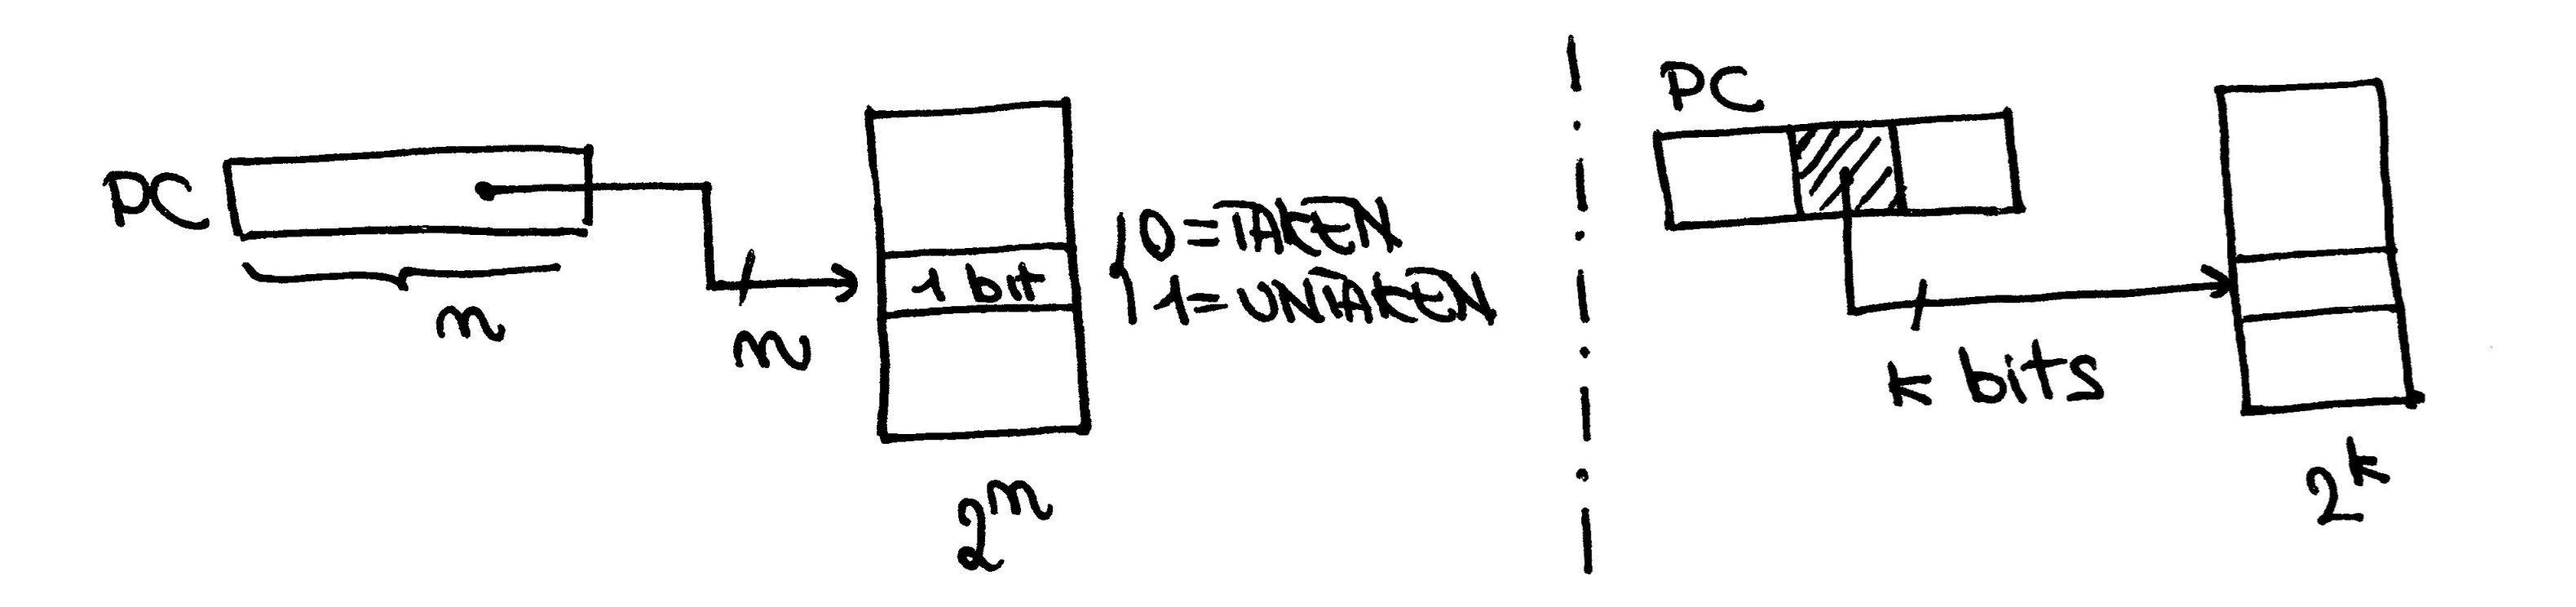 PC
n
n
1 bit
0 = TAKEN
1 = UNTAKEN
2^n
PC
k bits
2^k